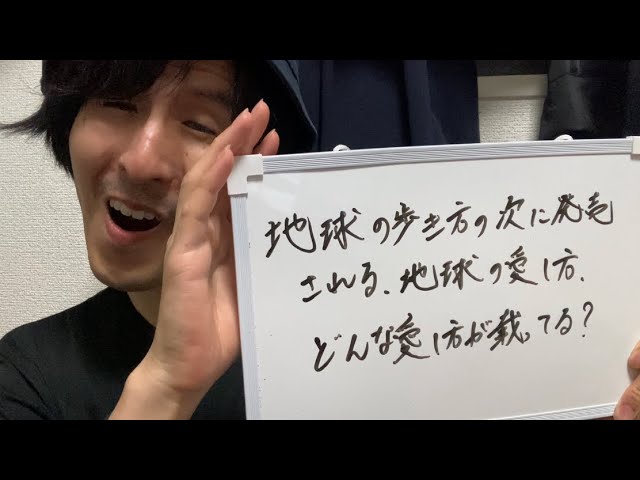 地球の歩き方の次に発売
される、地球の愛し方、
どんな愛し方が載ってる?